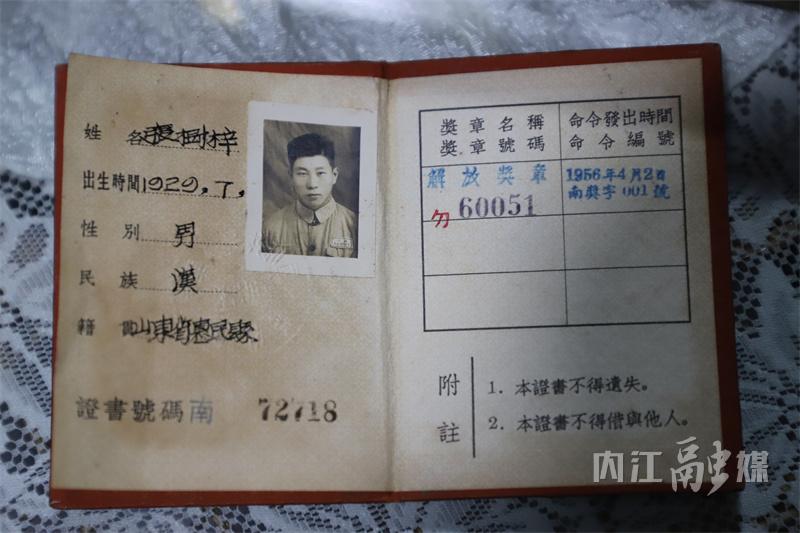 姓名 張樹梓
出生時間 1929.7.
性別 男
民族 漢
籍貫 山東省惠民縣
證書號碼南 72718
獎章名稱
獎章號碼
命令發出時間
命令編號
解放獎章
60051
1956年4月2日
南獎字001號
附註
1. 本證書不得遺失。
2. 本證書不得借與他人。
内江融媒